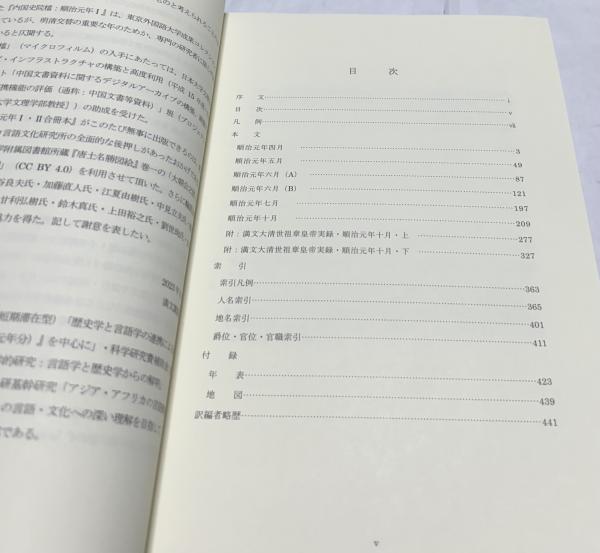 『内国史院檔：順治元年Ⅰ』は、東京外国語大学成果コレクション
ているが、明清交替の重要な年のためか、専門の研究者に
いると仄聞する。
（マイクロフィルム）の入手にあたっては、日本大学
・インフラストラクチャの構築と高度利用（平成15年度
ト「中国文書資料に関するデジタルアーカイブの構築
携機能の評価（通称：中国文書等資料）」班（プロジェ
大学文理学部教授））の助成を受けた。
元年Ⅰ・Ⅱ合冊本』がこのたび無事に出版できるのは、
言語文化研究所の全面的な後押しがあったおかげで
学附属図書館所蔵『唐土名勝図絵』巻一の
（CC BY 4.0）を利用させて頂いた。さらに
谷良夫氏・加藤直人氏・江夏由樹氏・中見立夫氏
甘利弘樹氏・鈴木真氏・上田裕之氏・
協力を得た。記して謝意を表したい。
短期滞在型）「歴史学と言語学の連携によ
元年分）』を中心に」・科学研究費補助金
的研究：言語学と歴史学からの解明
研基幹研究「アジア・アフリカの言語
の言語・文化への深い理解を目指して
である。
目　次
序　文 i
目　次 v
凡　例 vii
本　文
順治元年四月 3
順治元年五月 49
順治元年六月（A） 87
順治元年六月（B） 121
順治元年七月 197
順治元年十月 209
附：満文大清世祖章皇帝実録・順治元年十月・上 277
附：満文大清世祖章皇帝実録・順治元年十月・下 327
索　引
索引凡例 363
人名索引 365
地名索引 401
爵位・官位・官職索引 411
付　録
年　表 423
地　図 439
訳編者略歴 441
v